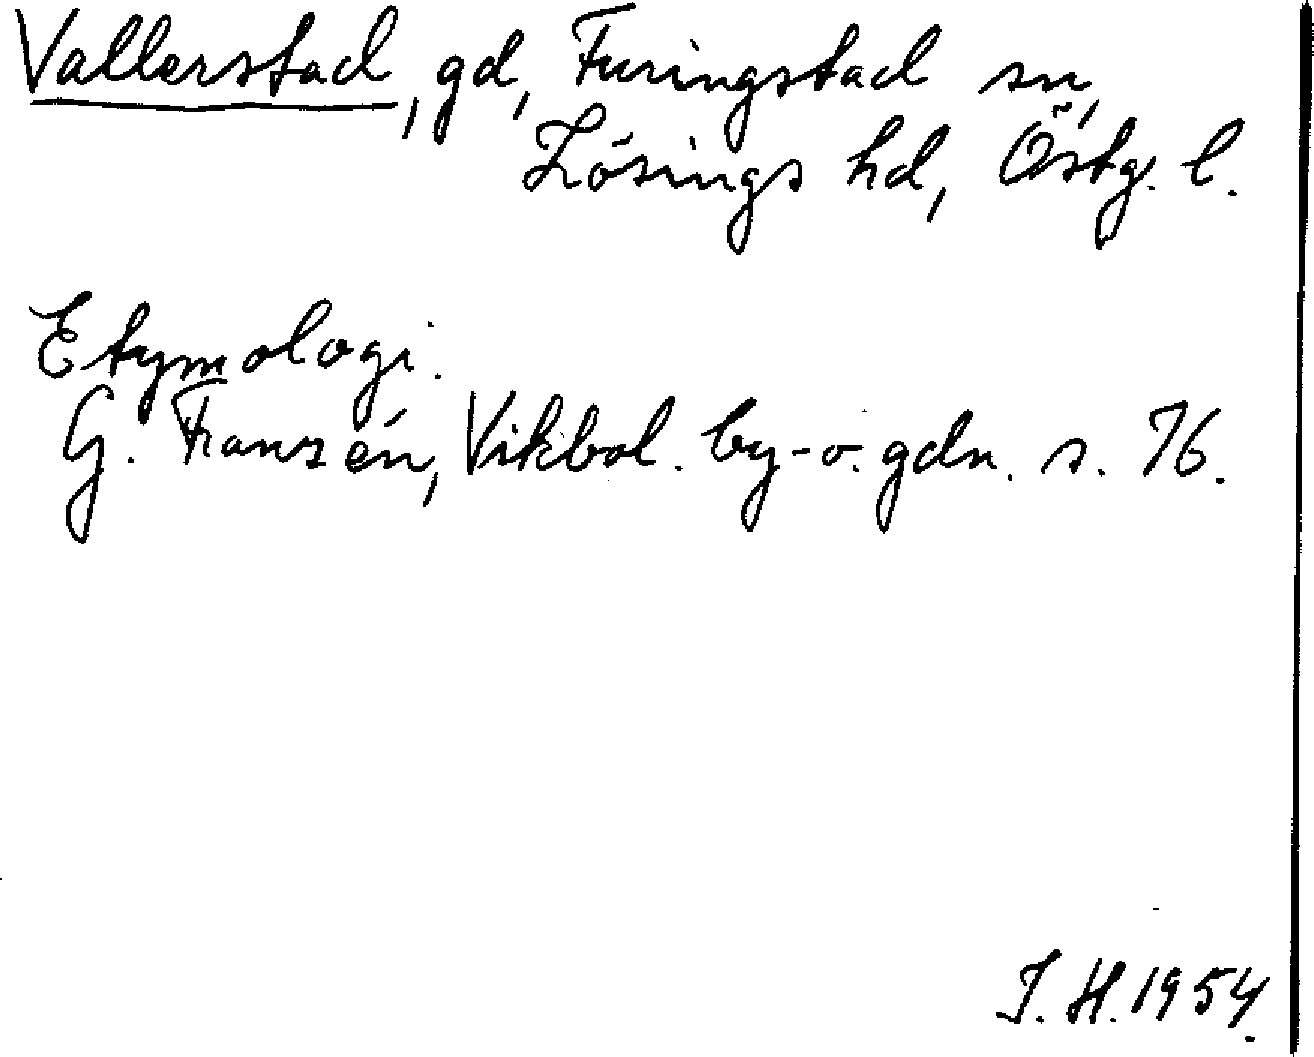 Vallerstad, gd, Furingstad sn,
Lösings hd, Östg. l.
Etymologi.
G. Franzén, Vikbol. by- o. gdn. s. 76.
J. H. 1954.